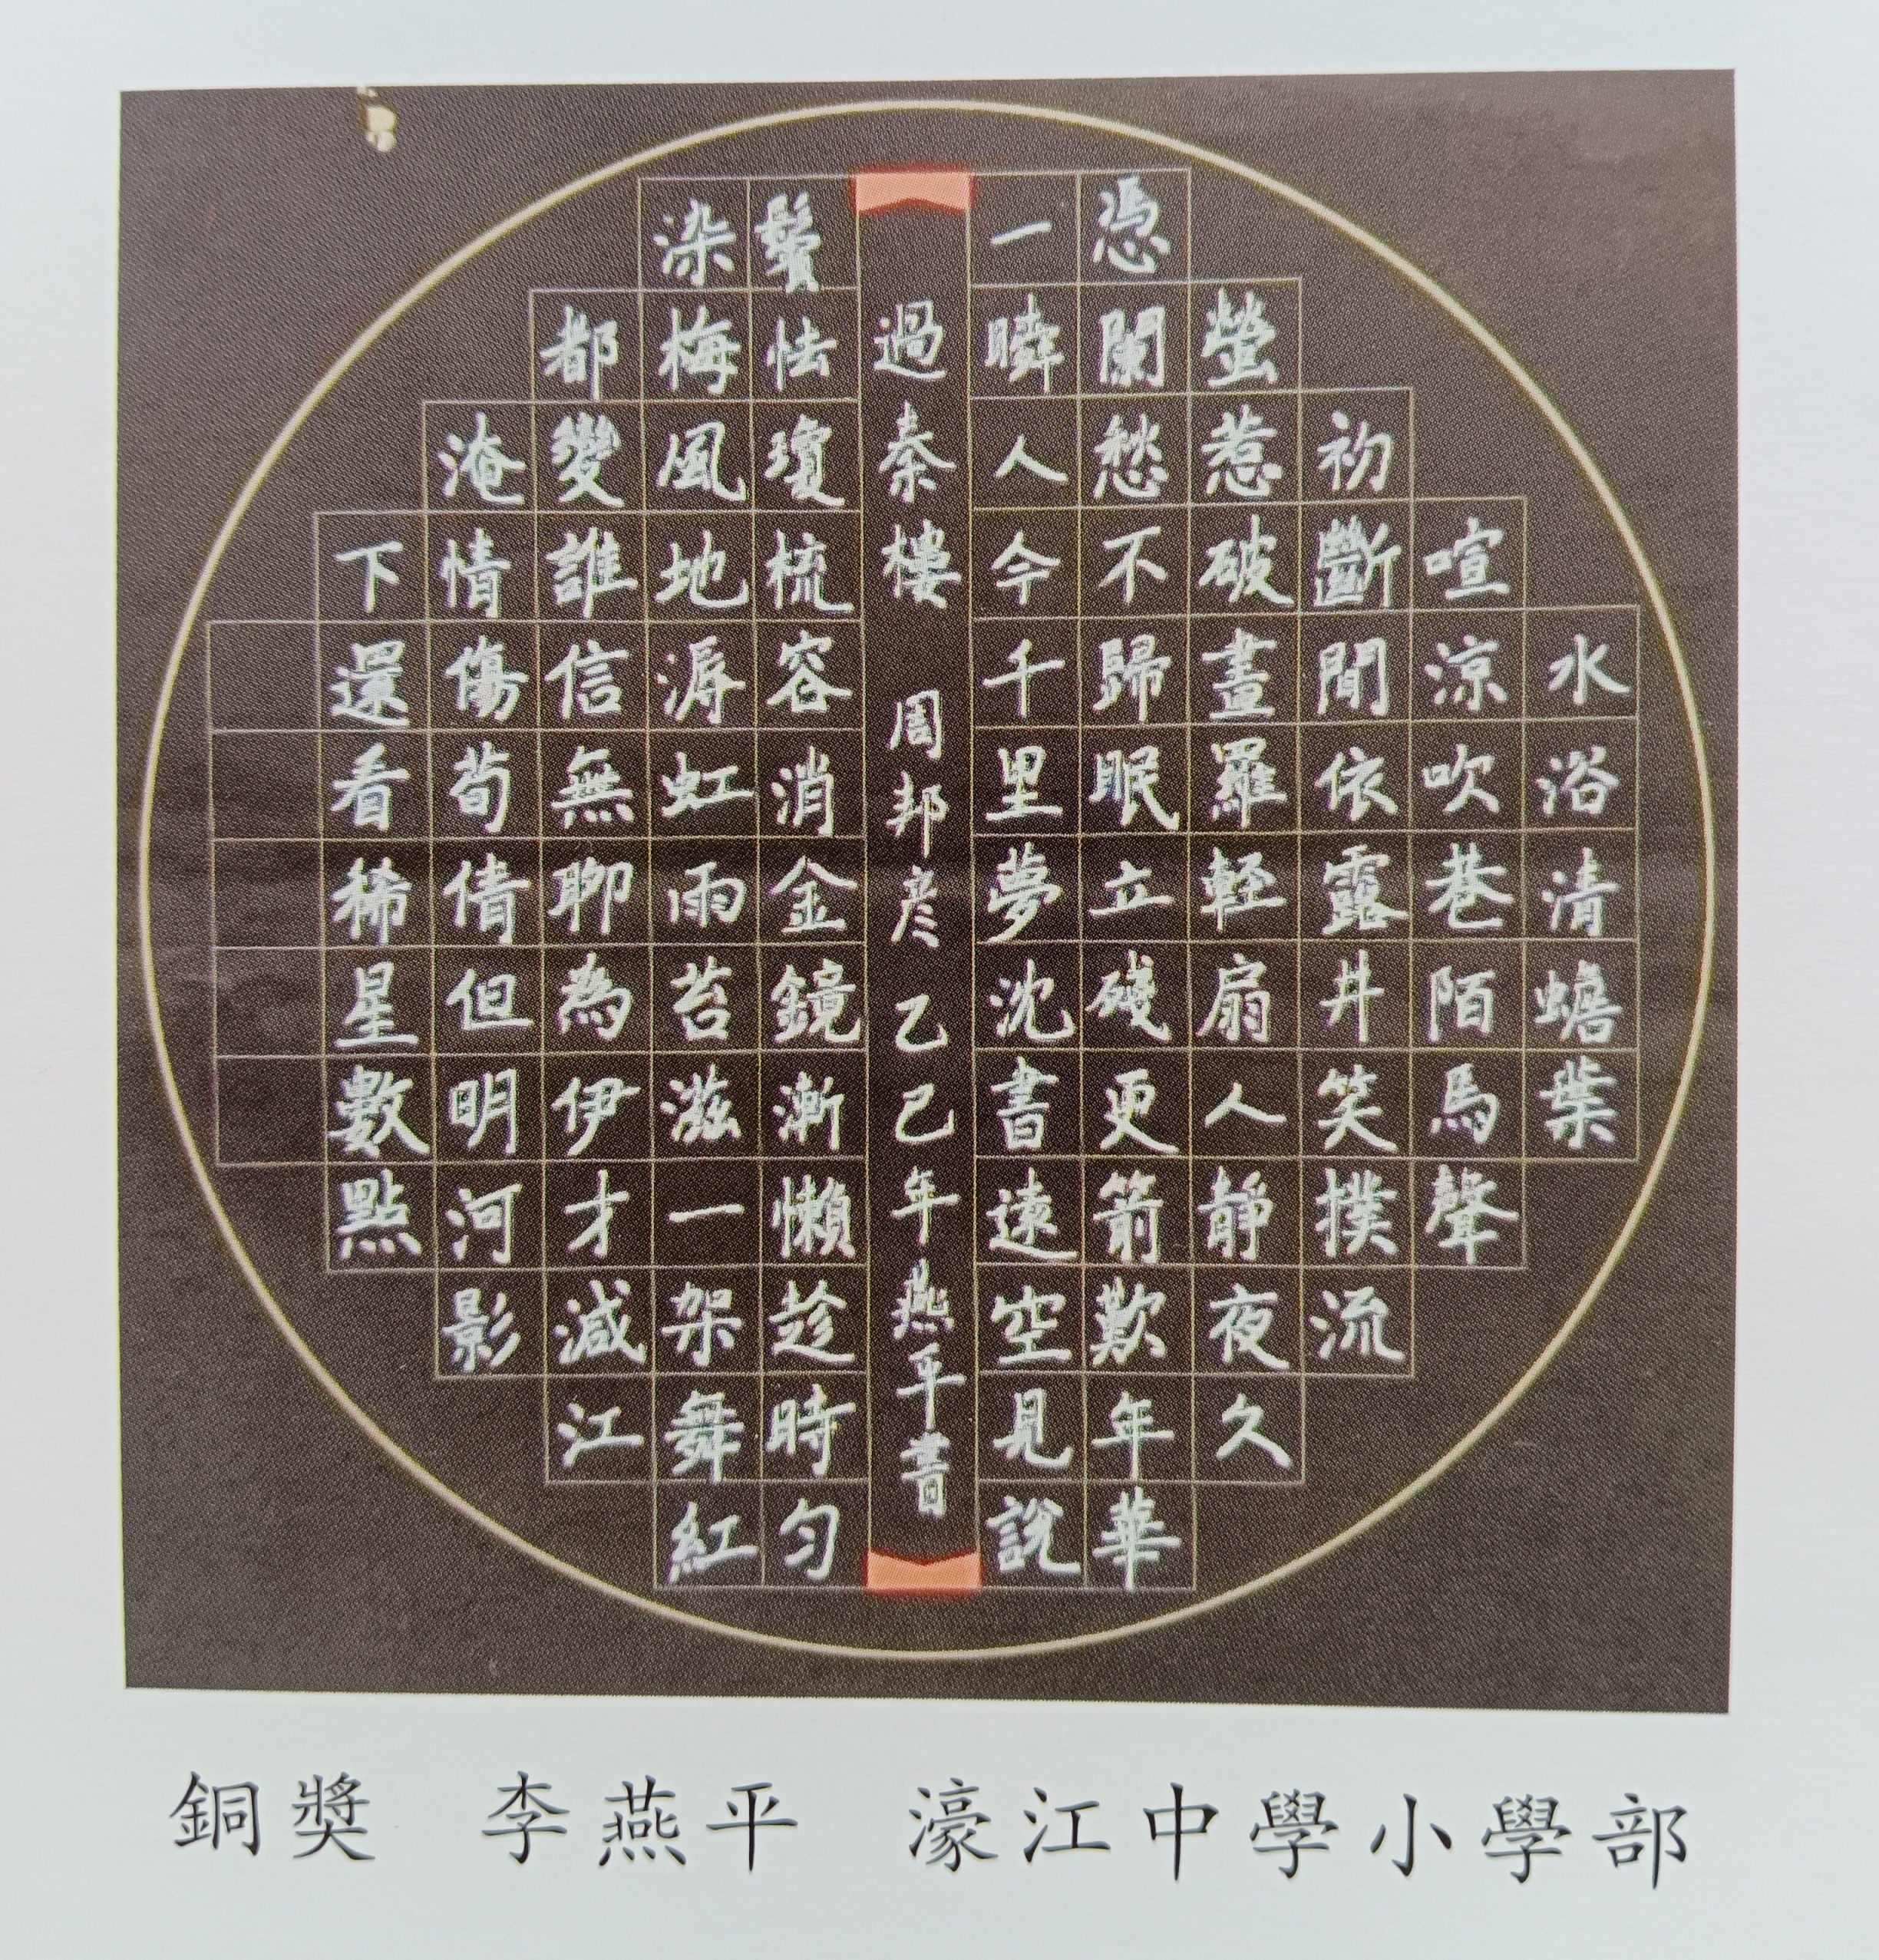 水浴清蟾葉
喧涼吹巷陌馬聲
初斷閒依露井笑撲流
螢惹破畫羅輕扇人靜夜久
憑闌愁不歸眠立殘更箭歎年華
一瞬人今千里夢沈書遠空見說
過秦樓 周邦彥 乙巳年燕平書
鬢怯瓊梳容消金鏡漸懶趁時勻
染梅風地溽虹雨苔滋一架舞紅
都變誰信無聊為伊才減江
淹情傷荀倩但明河影
下還看稀星數點
銅獎 李燕平 濠江中學小學部